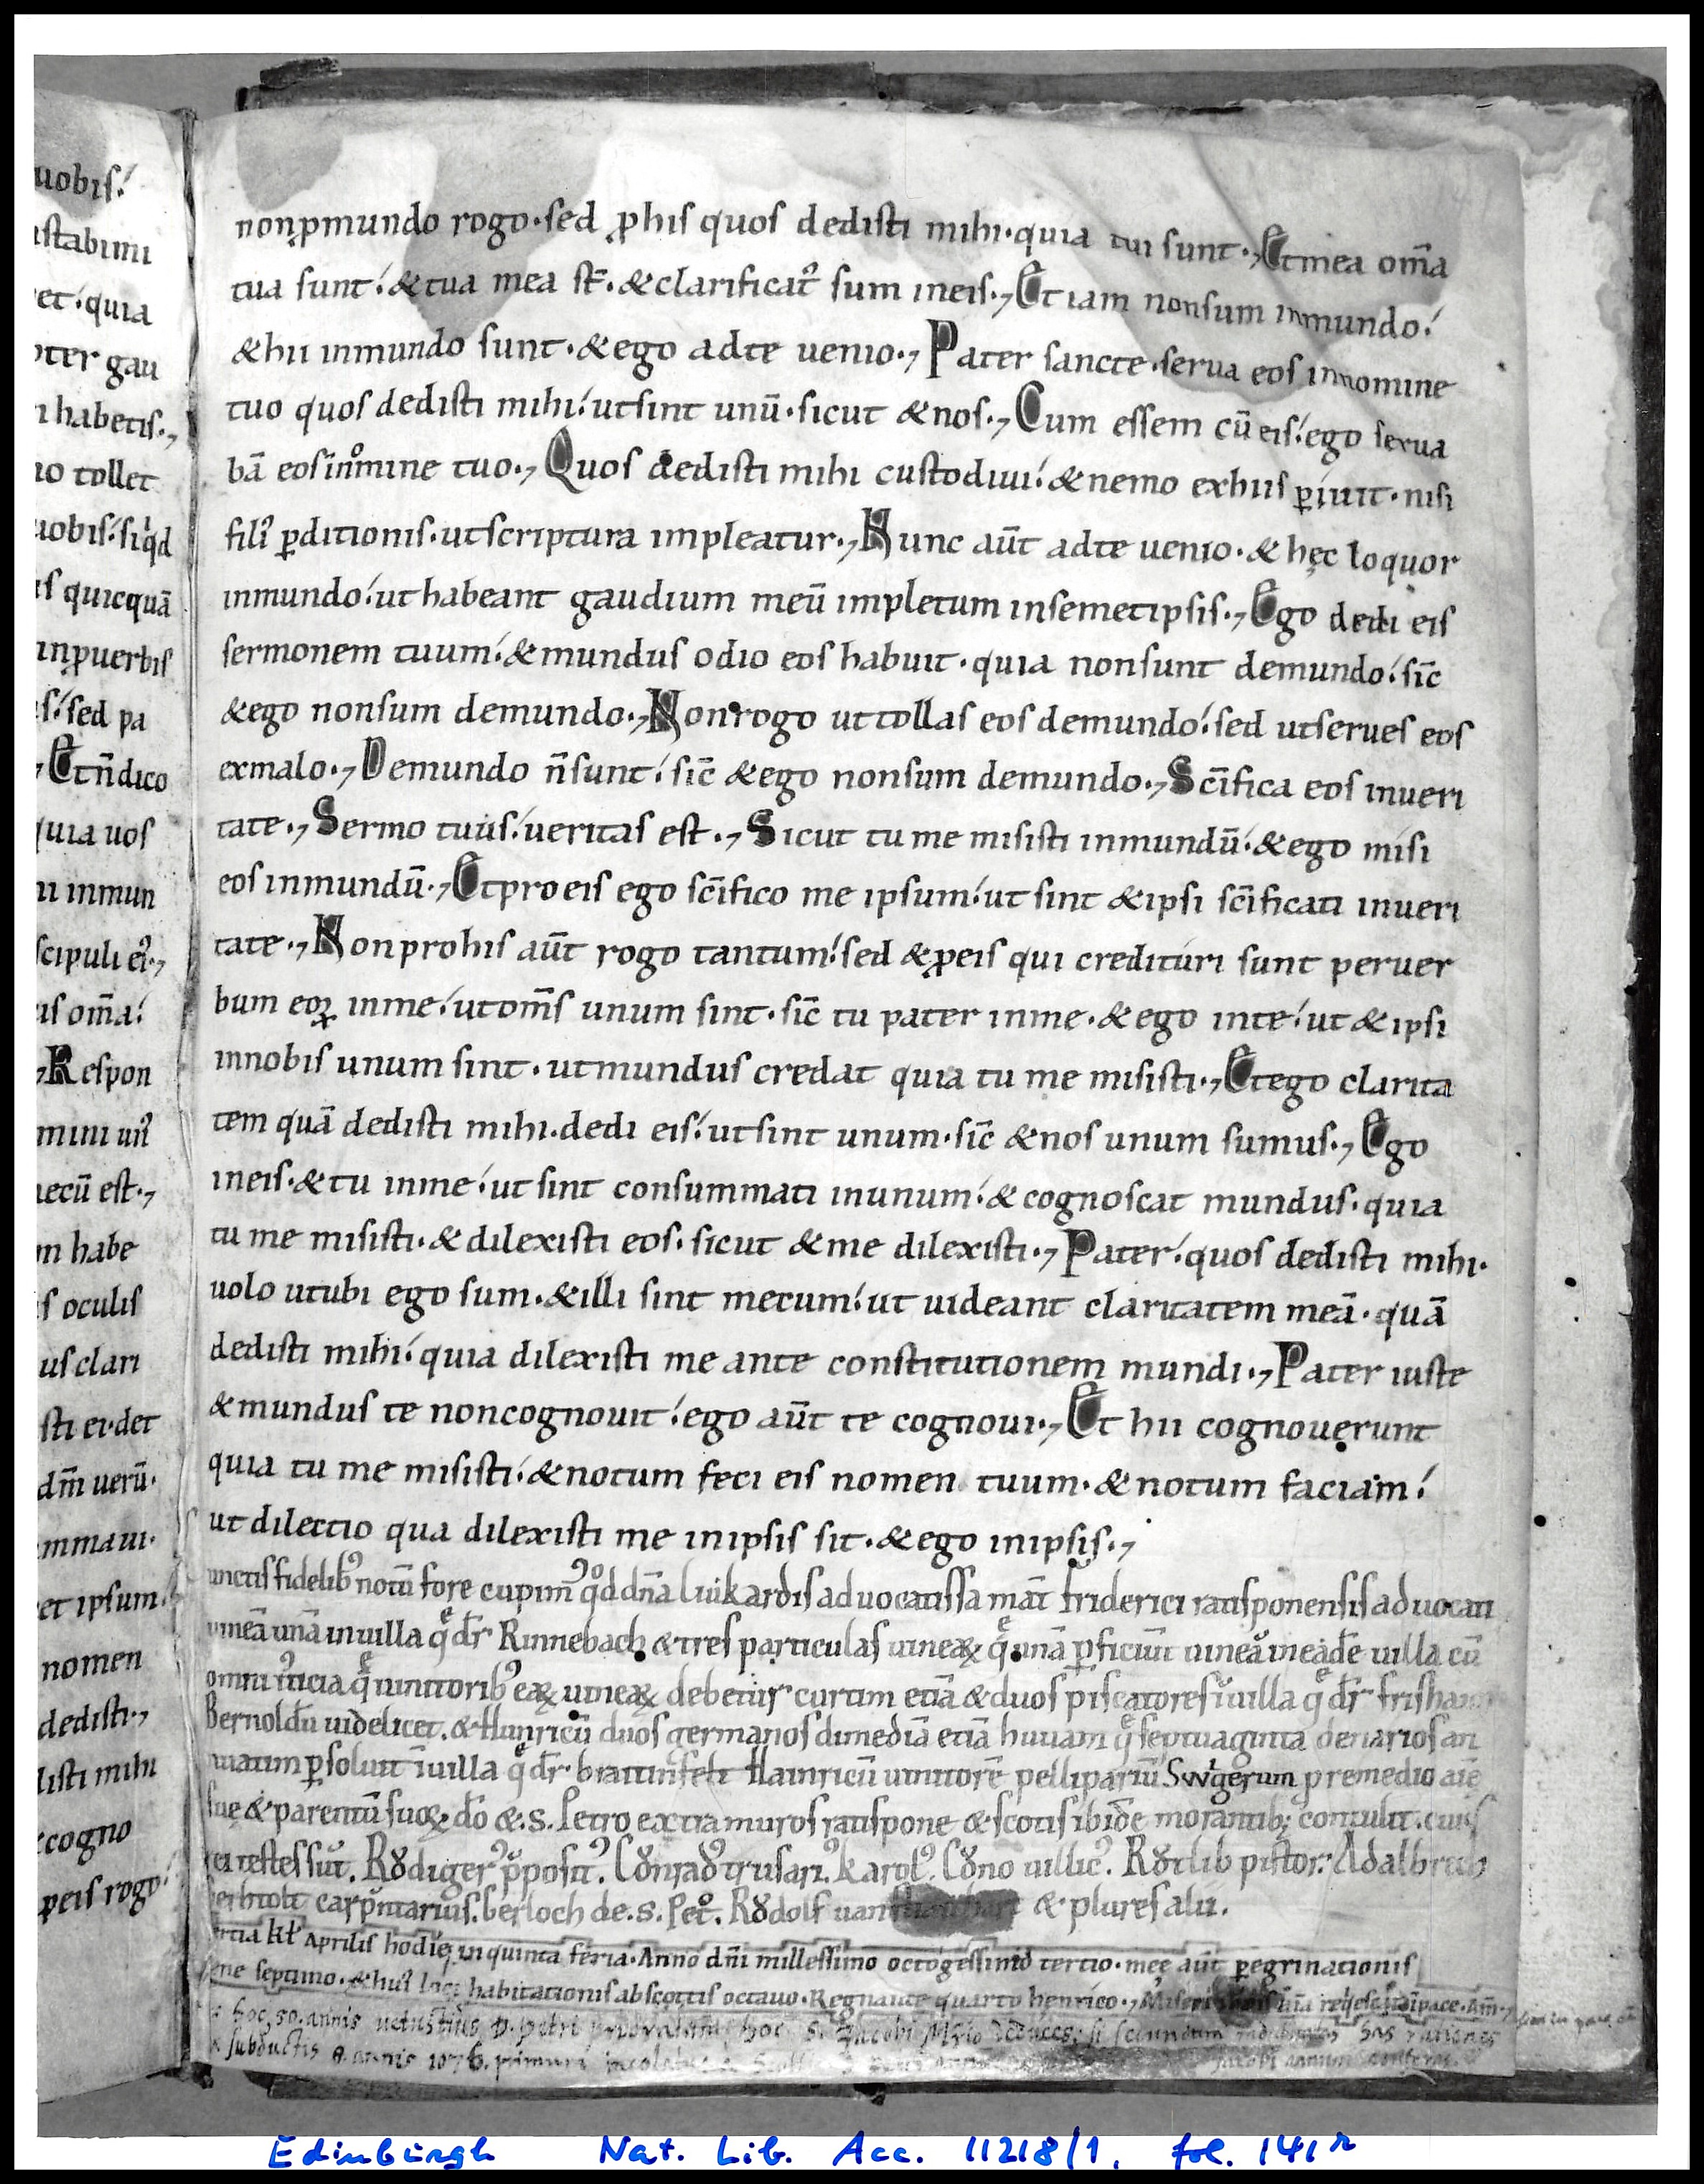 uobis.
stabimi
et. quia
pter gau
n habetis.,
no tollet
uobis. siqd
is quicquā
inꝓuerbis
s. sed pa
, Etn̄dico
quia uos
ni inmun
scipuli ei᾽.,
is om̄a.
, Respon
mini uni᾽
mecū est.,
m habe
s oculis
us clari
sti ei. det
dm̄ uerū.
mmaui.
et ipsum.
nomen
dedisti.,
disti mihi
cogno
ꝓeis rogo.
nonꝓmundo rogo. sed ꝓhis quos dedisti mihi. quia tui sunt., Etmea om̄a
tua sunt. &tua mea st̄. &clarificat᾽ sum ineis., Et iam nonsum inmundo.
&hii inmundo sunt. &ego adte uenio., Pater sancte. serua eos innomine
tuo quos dedisti mihi. utsint unū. sicut &nos., Cum essem cū eis. ego serua
bā eos innomine tuo., Quos dedisti mihi custodiui. &nemo exhiis ꝑiuit. nisi
fili᾽ ꝑditionis. utscriptura impleatur., Nunc aūt adte uenio. &hęc loquor
inmundo. ut habeant gaudium meū impletum insemetipsis., Ego dedi eis
sermonem tuum. &mundus odio eos habuit. quia nonsunt demundo. sic̄
&ego nonsum demundo., Nonrogo uttollas eos demundo. sed utserues eos
exmalo., Demundo n̄sunt. sic̄ &ego nonsum demundo., Sc̄ifica eos inueri
tate., Sermo tuus. ueritas est., Sicut tu me misisti inmundū. &ego misi
eos inmundū., Etpro eis ego sc̄ifico me ipsum. ut sint &ipsi sc̄ificati inueri
tate., Nonprohis aūt rogo tantum. sed &ꝓeis qui credituri sunt peruer
bum eoꝝ inme. utom̄s unum sint. sic̄ tu pater inme. &ego inte. ut &ipsi
innobis unum sint. utmundus credat quia tu me misisti., Etego clarita
tem quā dedisti mihi. dedi eis. utsint unum. sic̄ &nos unum sumus., Ego
ineis. &tu inme. ut sint consummati inunum. &cognoscat mundus. quia
tu me misisti. &dilexisti eos. sicut &me dilexisti., Pater. quos dedisti mihi.
uolo utubi ego sum. &illi sint mecum. ut uideant claritatem meā. quā
dedisti mihi. quia dilexisti me ante constitutionem mundi., Pater iuste
&mundus te noncognouit. ego aūt te cognoui., Et hii cognouerunt
quia tu me misisti. &notum feci eis nomen tuum. &notum faciam.
ut dilectio qua dilexisti me inipsis sit. &ego inipsis.,
unctis fidelib᾽ notū fore cupim᾽ qd dn̄a Liukardis aduocatissa mat̄ friderici ratisponensis aduocati
uineā unā inuilla q dr̄ Rinnebach &tres particulas uineaꝝ q unā ꝑficiunt uineā ineadē uilla cū
omni iusticia q uinitorib᾽ eaꝝ uineaꝝ debetur curtim etiā &duos piscatores ī uilla q dr̄
Bernoldū uidelicet. &Hunricū duos germanos dimediā etiā huuam q septuaginta denarios an
nuatim ꝑsoluit ī uilla q dr̄ Hainricū uinitorē pelliparıū Swigerum ꝓremedio aīe
sue &parentū suoꝝ do &. s. Petro extra muros ratispone &scotis ibidē morantib; contulit. cui᾽
rei testes sūt. Rŏdiger᾽ pposit᾽. Cŏnrad᾽ trusari᾽. Karol᾽. Cŏno uillic᾽. Rŏtlib pistor. Adalbreh
carpntarius. berloch de. s. Pet̄. Rŏdolf uan &plures alii.
ertia kł Aprilis hodie inquinta feria. Anno dn̄i millessimo octogessimo tertio. mee aūt ꝑegrinationis
ene septimo. &hui᾽ loci habitationis abscottis octauo. Regnante quarto henrico., in pace. Am̄.,
hoc, 50. annis uetustius D. Petri hoc S. Jacobi deduces; si secundum has rationes
subductis 8. annis 1076. primum Jacobi annum conferas.
Edinburgh Nat. Lib. Acc. 11218/1, fol. 141ʳ